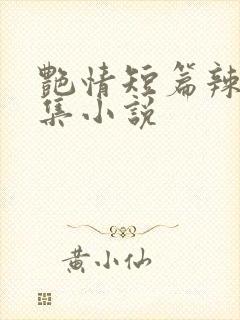 艷情短篇辣
集小說
黃小仙